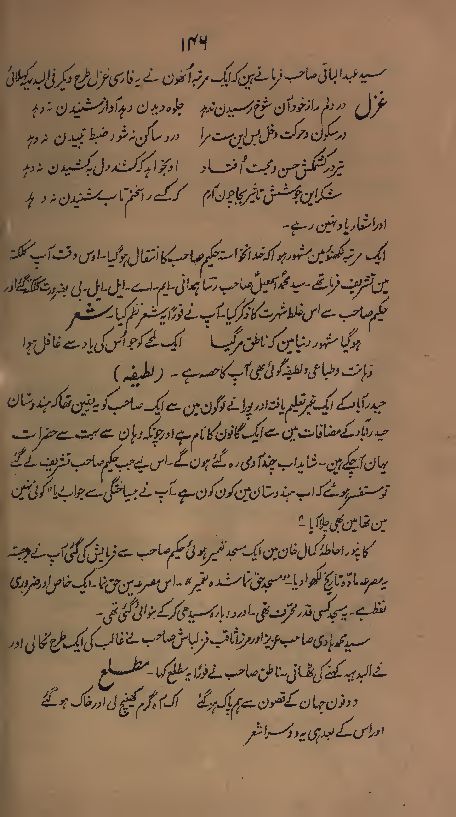 ۱۴۶
سید عبدالباقی صاحب فرماتے ہین کہ ایک مرتبہ اُنھون نے یہ فارسی غزل طرح دیکر فی البدیہ کہلائی
غزل در دلم ناز خود آن شوخ رسیدن ندہد جلوہ دیدن دہد آواز شنیدن نہ دہد
در سکون و حرکت دخل بس این ہست مرا درد ساکن نہ شود ضبط تپیدن نہ دہد
تیر در کشمکش حسن و محبت اُفتاد او بخواہد کہ کشد دل بہ کشیدن نہ دہد
شکر این جوشش تاثیر بجا چون آرم کہ کسے را سخنم تاب شنیدن نہ دہد
اور اشعار یاد نہین رہے۔
ایک مرتبہ لکھنؤ مین مشہور ہوا کہ خدانخواستہ حکیم صاحب کا انتقال ہوگیا۔ اوس وقت آپ کلکتہ
مین تشریف فرما تھے۔ سید محمد اسمعیل صاحب رسا ہمدانی۔ ایم۔ اے۔ ایل۔ ایل۔ بی بضرورت کلکتہ گئے اور
حکیم صاحب سے اس غلط شہرت کا ذکر کیا۔ آپ نے فوراً یہ شعر نظم کیا۔ شعر
ہوگیا مشہور دنیا مین کہ ناطق مرگیا ایک لمحے کو جو اُس کی یاد سے غافل ہوا
ذہانت و طباعی و لطیفہ گوئی بھی آپ کا حصہ ہے۔ (لطیفہ)
حیدرآباد کے ایک غیر تعلیم یافتہ اور پورانے لوگون مین سے ایک صاحب کو یہ یقین تھا کہ ہندوستان
حیدرآباد کے مضافات مین سے ایک گانون کا نام ہے اور چونکہ وہان سے بہت سے حضرات
یہان آچکے ہین۔ شاید اب چند آدمی رہ گئے ہون گے۔ اس لیے جب حکیم صاحب تشریف لے گئے
تو مستفسر ہوئے کہ اب ہندوستان مین کون کون ہے۔ آپ نے بیساختگی سے جواب دیا "کوئی نہین
مین تھا مین بھی چلا آیا"
کانپور احاطہ کمال خان مین ایک مسجد تعمیر ہوئی حکیم صاحب سے فرمایش کی گئی آپ نے برجستہ
یہ مصرعہ مادّہ تاریخ لکھوادیا۔ "مسجد حق بنا شدہ تعمیر"۔ اس مصرعہ مین حق بنا۔ ایک خاص اور ضروری
لفظ ہے۔ یہ مسجد کسی قدر منحرف تھی۔ اور دوبارہ سیدھی کر کے بنوائی گئی تھی۔
سید محمد ہادی صاحب عزیز اور مرزا ثاقب قزلباش صاحب نے غالب کی ایک طرح نکالی اور
نے البدیہہ کہنے کی ٹھانی۔ ناطق صاحب نے فوراً یہ مطلع کہا۔ مطلع
دونون جہان کے قصون سے ہم پاک ہوگئے اک آہ گرم کھینچ لی اور خاک ہوگئے
اور اس کے بعد ہی یہ دوسرا شعر